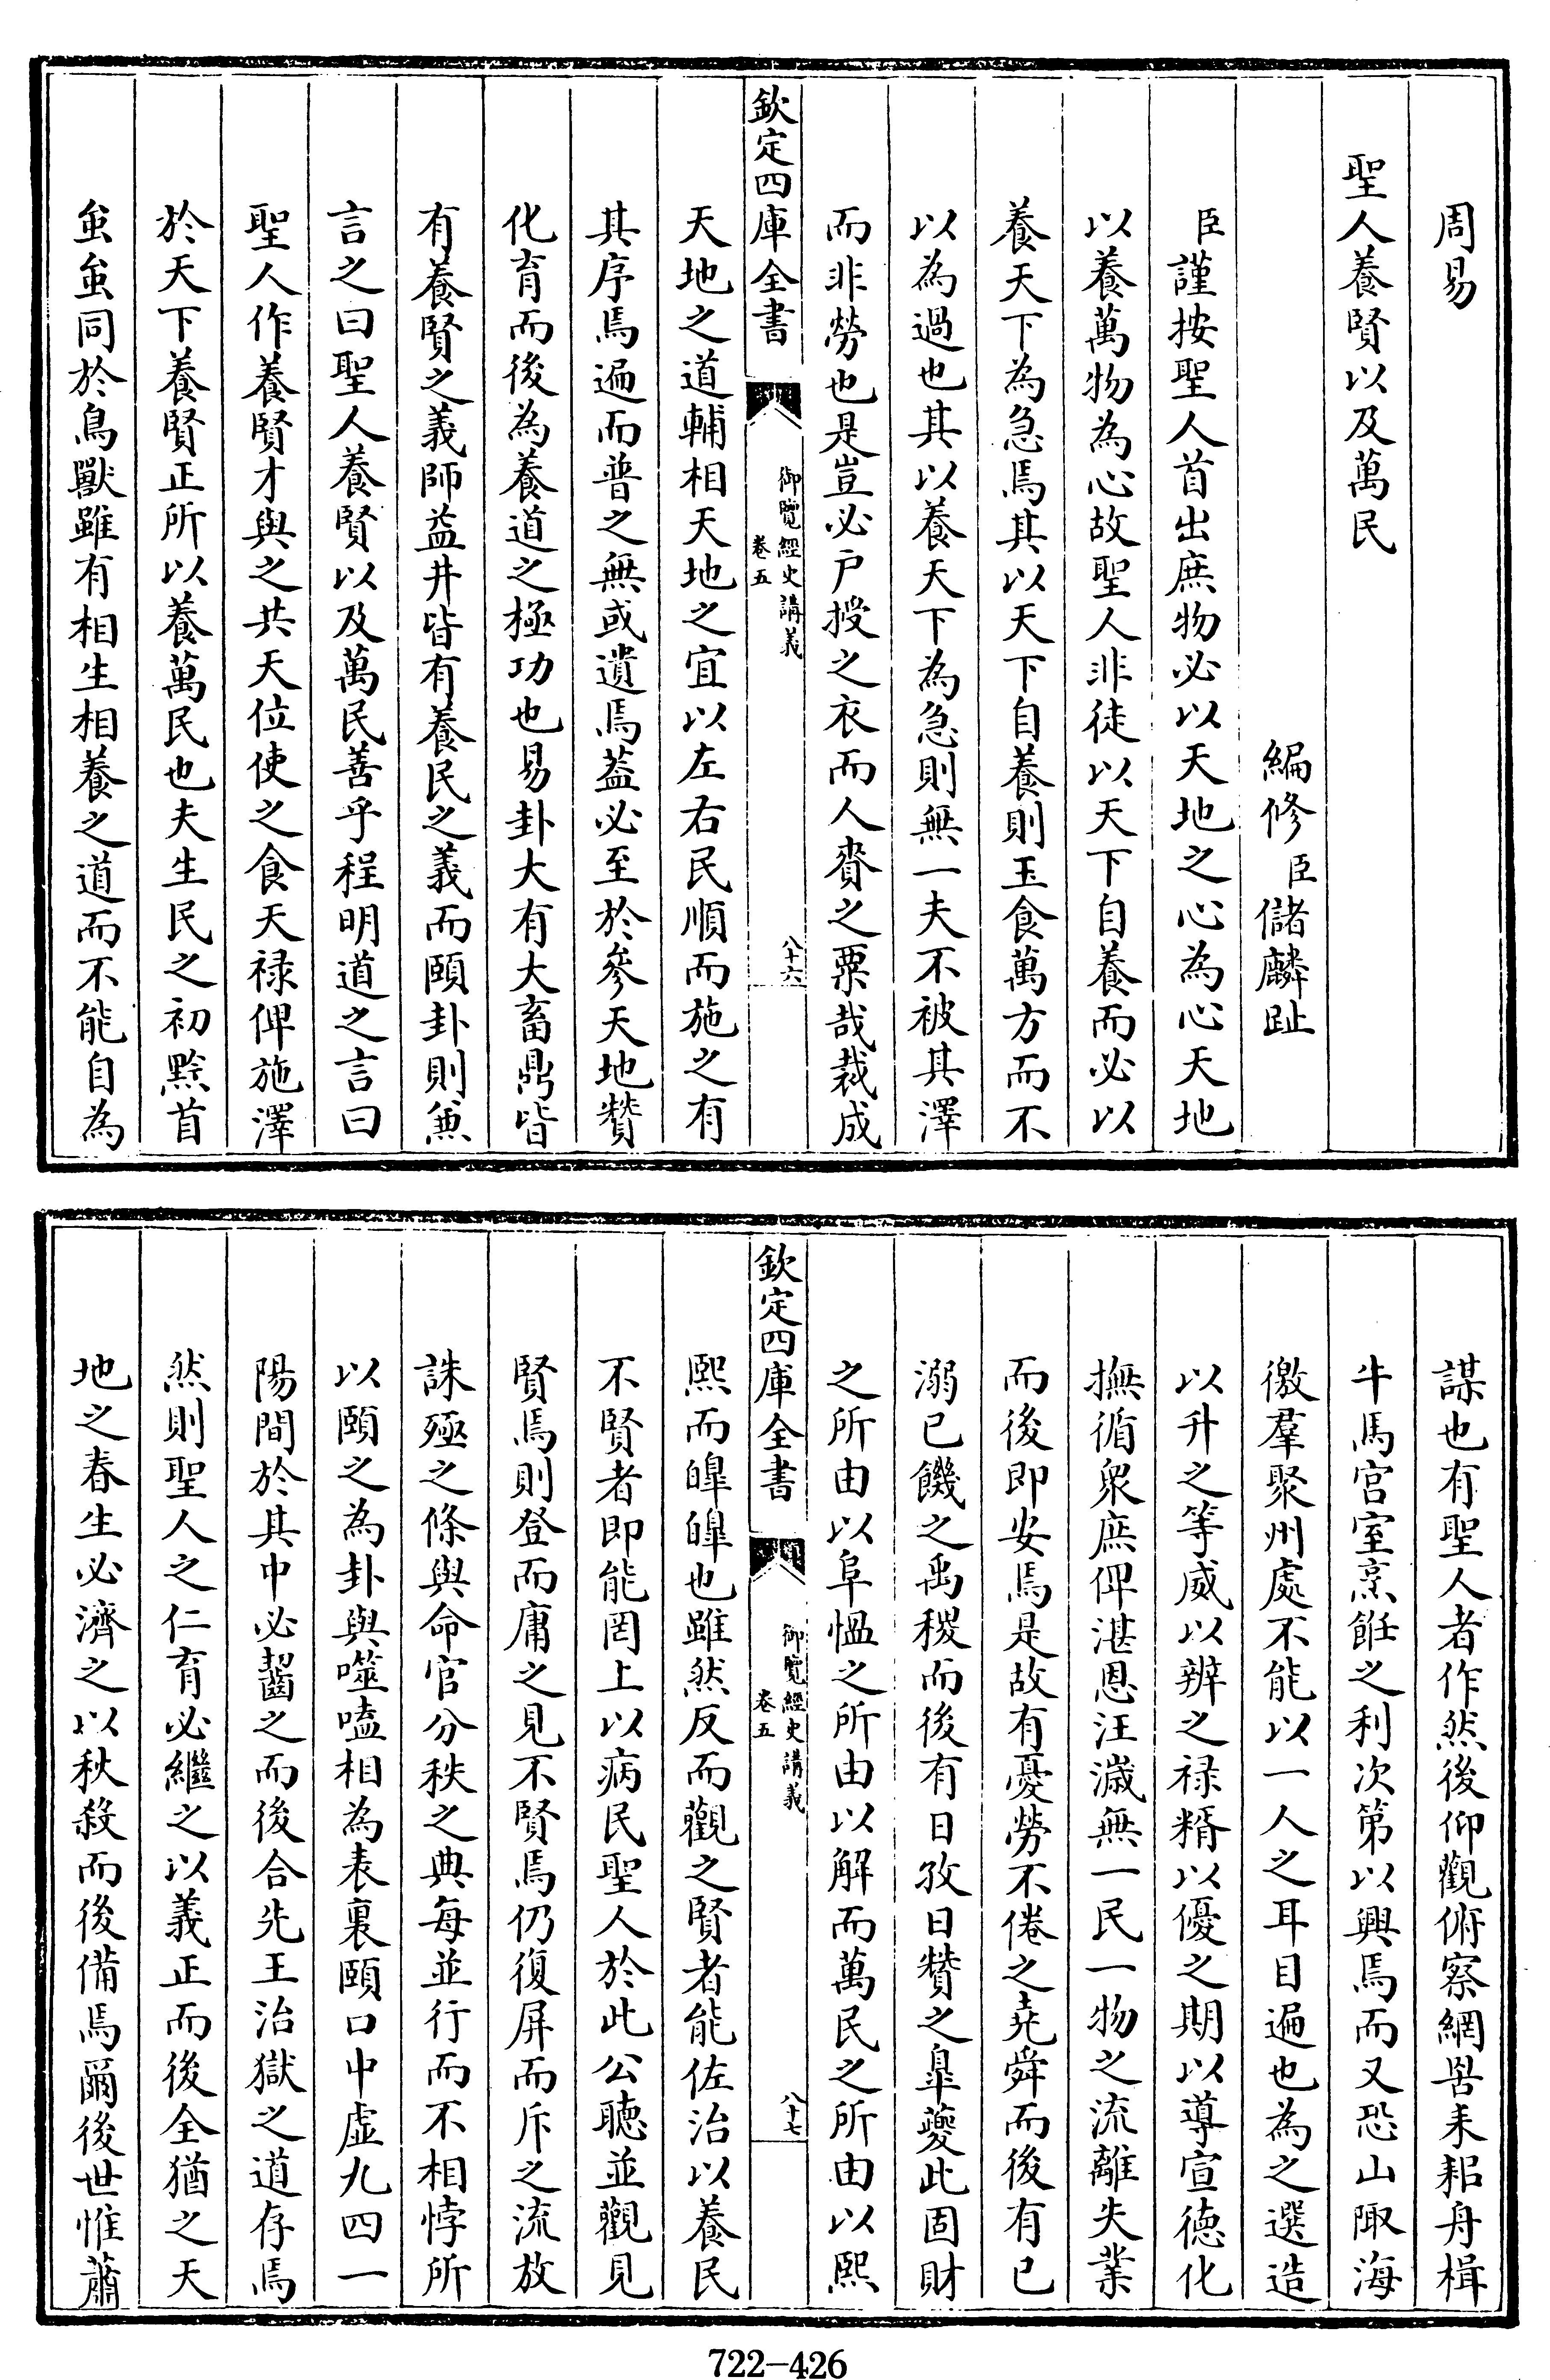 周易
聖人養賢以及萬民
編修臣儲麟趾
臣謹按聖人首出庶物必以天地之心為心天地
以養萬物為心故聖人非徒以天下自養而必以
養天下為急焉其以天下自養則玉食萬方而不
以為過也其以養天下為急則無一夫不被其澤
而非勞也是豈必戶授之衣而人賚之粟哉裁成
欽定四庫全書
御覽經史講義
卷五
八十六
天地之道輔相天地之宜以左右民順而施之有
其序焉遍而普之無或遺焉葢必至於參天地贊
化育而後為養道之極功也易卦大有大畜鼎皆
有養賢之義師益井皆有養民之義而頤卦則兼
言之曰聖人養賢以及萬民善乎程明道之言曰
聖人作養賢才與之共天位使之食天祿俾施澤
於天下養賢正所以養萬民也夫生民之初黔首
䖝䖝同於鳥獸雖有相生相養之道而不能自為
謀也有聖人者作然後仰觀俯察網罟耒耜舟楫
牛馬宮室烹飪之利次第以興焉而又恐山陬海
徼羣聚州處不能以一人之耳目遍也為之選造
以升之等威以辨之祿糈以優之期以導宣德化
撫循衆庶俾湛恩汪濊無一民一物之流離失業
而後即安焉是故有憂勞不倦之堯舜而後有已
溺已饑之禹稷而後有日孜日贊之臯夔此固財
之所由以阜慍之所由以解而萬民之所由以熙
欽定四庫全書
御覽經史講義
卷五
八十七
熙而皥皥也雖然反而觀之賢者能佐治以養民
不賢者即能罔上以病民聖人於此公聽並觀見
賢焉則登而庸之見不賢焉仍復屏而斥之流放
誅殛之條與命官分秩之典每並行而不相悖所
以頤之為卦與噬嗑相為表裏頤口中虛九四一
陽間於其中必齧之而後合先王治獄之道存焉
然則聖人之仁育必繼之以義正而後全猶之天
地之春生必濟之以秋殺而後備焉爾後世惟蕭
722-426